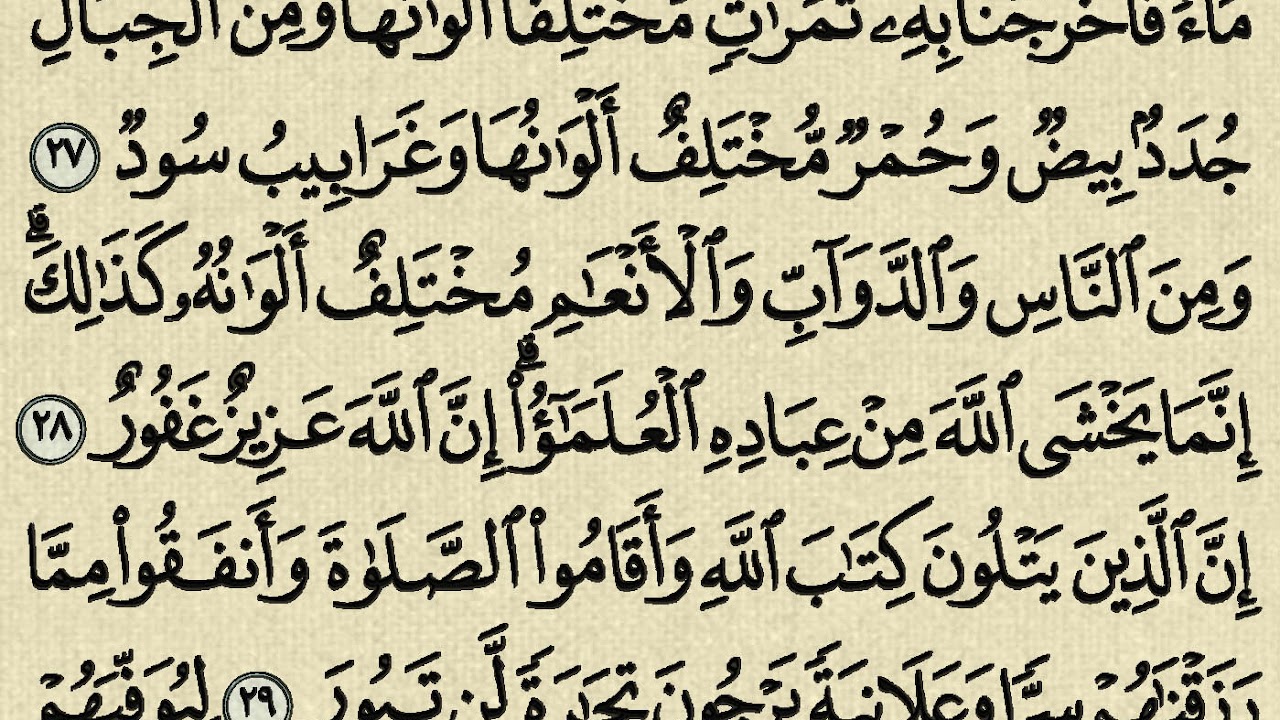 مَآءً فَأَخْرَجْنَا بِهِۦ ثَمَرَٰتٍ مُّخْتَلِفًا أَلْوَٰنُهَا وَمِنَ ٱلْجِبَالِ
جُدَدٌۢ بِيضٌ وَحُمْرٌ مُّخْتَلِفٌ أَلْوَٰنُهَا وَغَرَابِيبُ سُودٌ ٢٧
وَمِنَ ٱلنَّاسِ وَٱلدَّوَآبِّ وَٱلْأَنْعَٰمِ مُخْتَلِفٌ أَلْوَٰنُهُۥ كَذَٰلِكَ ۗ
إِنَّمَا يَخْشَى ٱللَّهَ مِنْ عِبَادِهِ ٱلْعُلَمَٰٓؤُا۟ ۗ إِنَّ ٱللَّهَ عَزِيزٌ غَفُورٌ ٢٨
إِنَّ ٱلَّذِينَ يَتْلُونَ كِتَٰبَ ٱللَّهِ وَأَقَامُوا۟ ٱلصَّلَوٰةَ وَأَنفَقُوا۟ مِمَّا
رَزَقْنَٰهُمْ سِرًّا وَعَلَانِيَةً يَرْجُونَ تِجَٰرَةً لَّن تَبُورَ ٢٩ لِيُوَفِّيَهُمْ